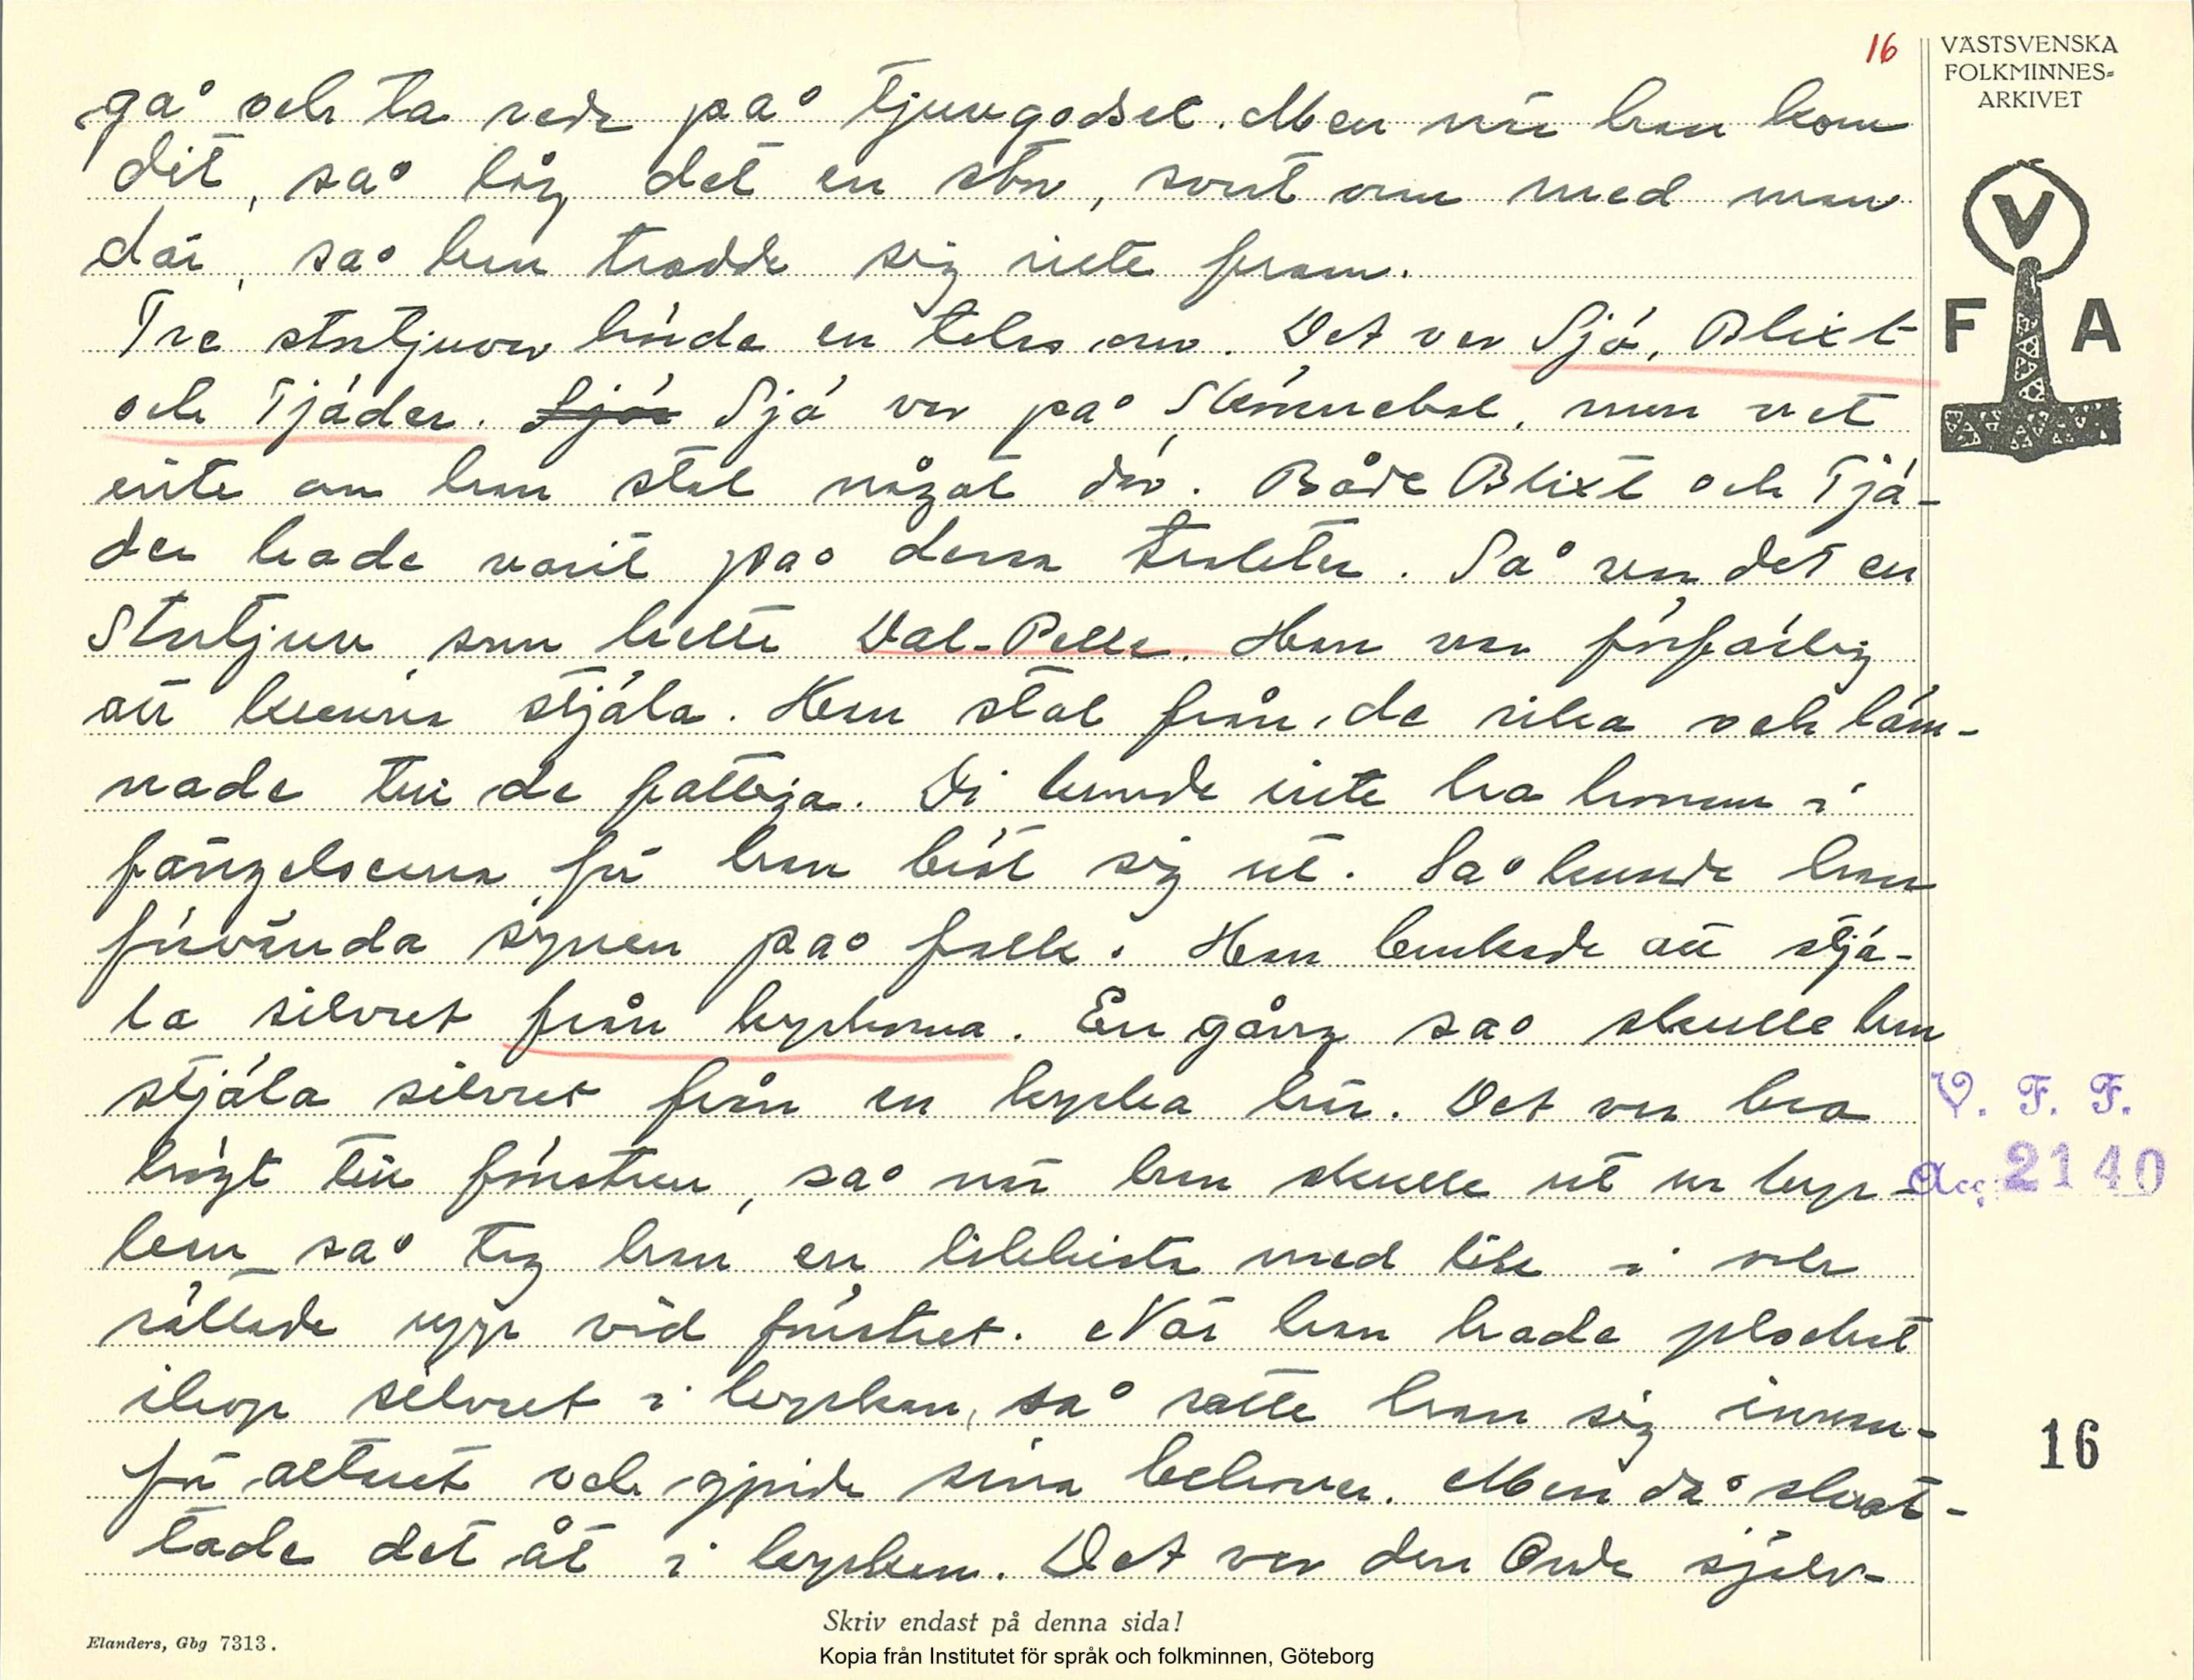 16
VÄSTSVENSKA
FOLKMINNES-
ARKIVET
V
F A
gå och ta reda på tjuvgodset. Men när han kom
dit, så låg det en stor, svart orm med man
där, så han trodde sig inte fram.
Tre stortjuvar hörde en talas om. Det var Sjö, Blixt
och Tjäder. Sjö var på , men vet
inte om han stal något där. Både Blixt och Tjä-
der hade varit på dessa trakter. Så var det en
Stortjuv som hette Dal-Pelle. Han var förfärlig
att kunna stjäla. Han stal från de rika och läm-
nade till de fattiga. Di kunde inte ha honom i
fängelserna för han bröt sig ut. Så kunde han
förvända synen på folk. Han brukade att stjä-
la silvret från kyrkorna. En gång så skulle han
stjäla silvret från en kyrka här. Det var bra
högt till fönstren, så när han skulle ut ur kyr-
kan så tog han en likkista med lik i och
ställde upp vid fönstret. När han hade plockat
ihop silvret i kyrkan, så satte han sig innan-
för altaret och gjorde sina behov. Men då skrat-
tade det åt i kyrkan. Det var den Onde själv-
V. F. F.
Acc. 2140
16
Skriv endast på denna sida!
Elanders, Gbg 7313.
Kopia från Institutet för språk och folkminnen, Göteborg